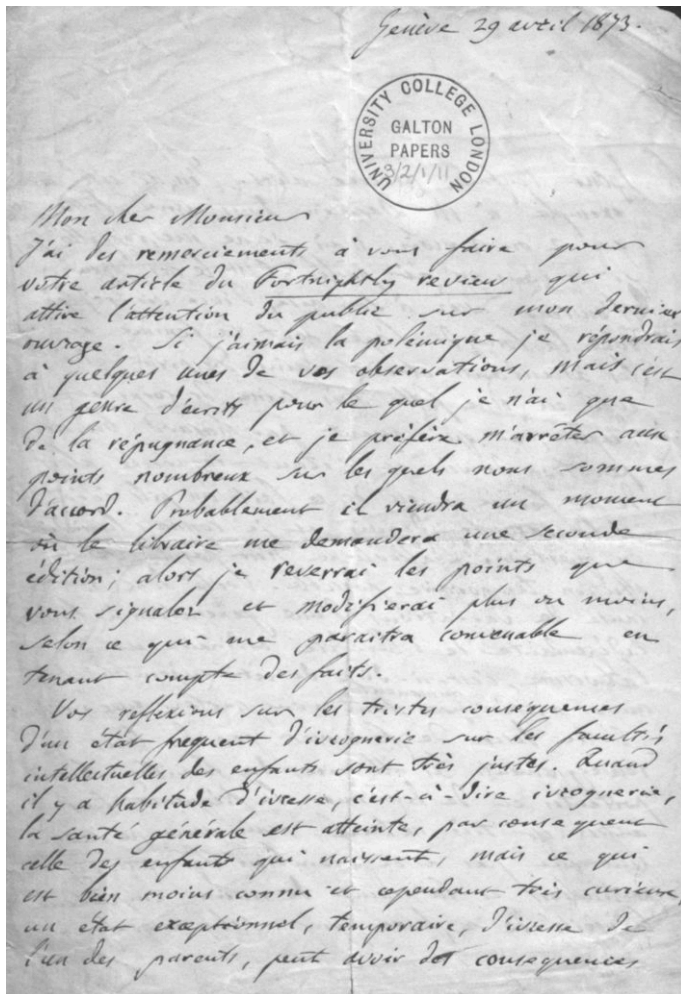 Genève 29 avril 1873.
UNIVERSITY COLLEGE LONDON
GALTON
PAPERS
3/2/1/11
Mon cher Monsieur
J'ai des remerciements à vous faire pour
votre article du Fortnightly review qui
attire l'attention du public sur mon dernier
ouvrage. Si j'aimais la polémique je répondrais
à quelques unes de vos observations, mais c'est
un genre d'écrits pour le quel je n'ai que
de la répugnance, et je préfère m'arrêter aux
points nombreux sur les quels nous sommes
d'accord. Probablement il viendra un moment
où le libraire me demandera une seconde
édition; alors je reverrai les points que
vous signalez et modifierai plus ou moins,
selon ce qui me paraitra convenable en
tenant compte des faits.
Vos reflexions sur les tristes conséquences
d'un état frequent d'ivrognerie sur les facultés
intellectuelles des enfants sont très justes. Quand
il y a habitude d'ivresse, c'est-à-dire ivrognerie,
la santé générale est atteinte, par consequent
celle des enfants qui naissent, mais ce qui
est bien moins connu et cependant très curieux,
un état exceptionnel, temporaire, d'ivresse de
l'un des parents, peut avoir des consequences